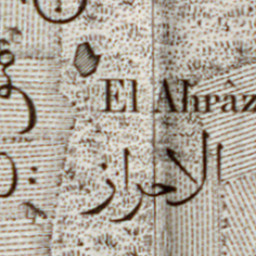 El Ahraz
الاحراز